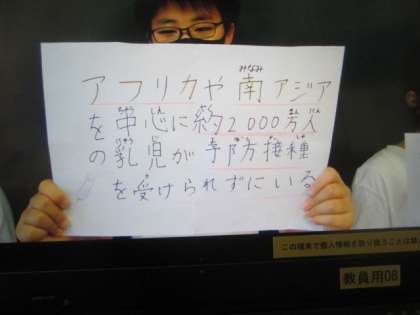 アフリカや南アジア
を中心に約2000万人
の乳児が予防接種
を受けられずにいる
この端末で個人情報を取り扱うことは禁
教員用08